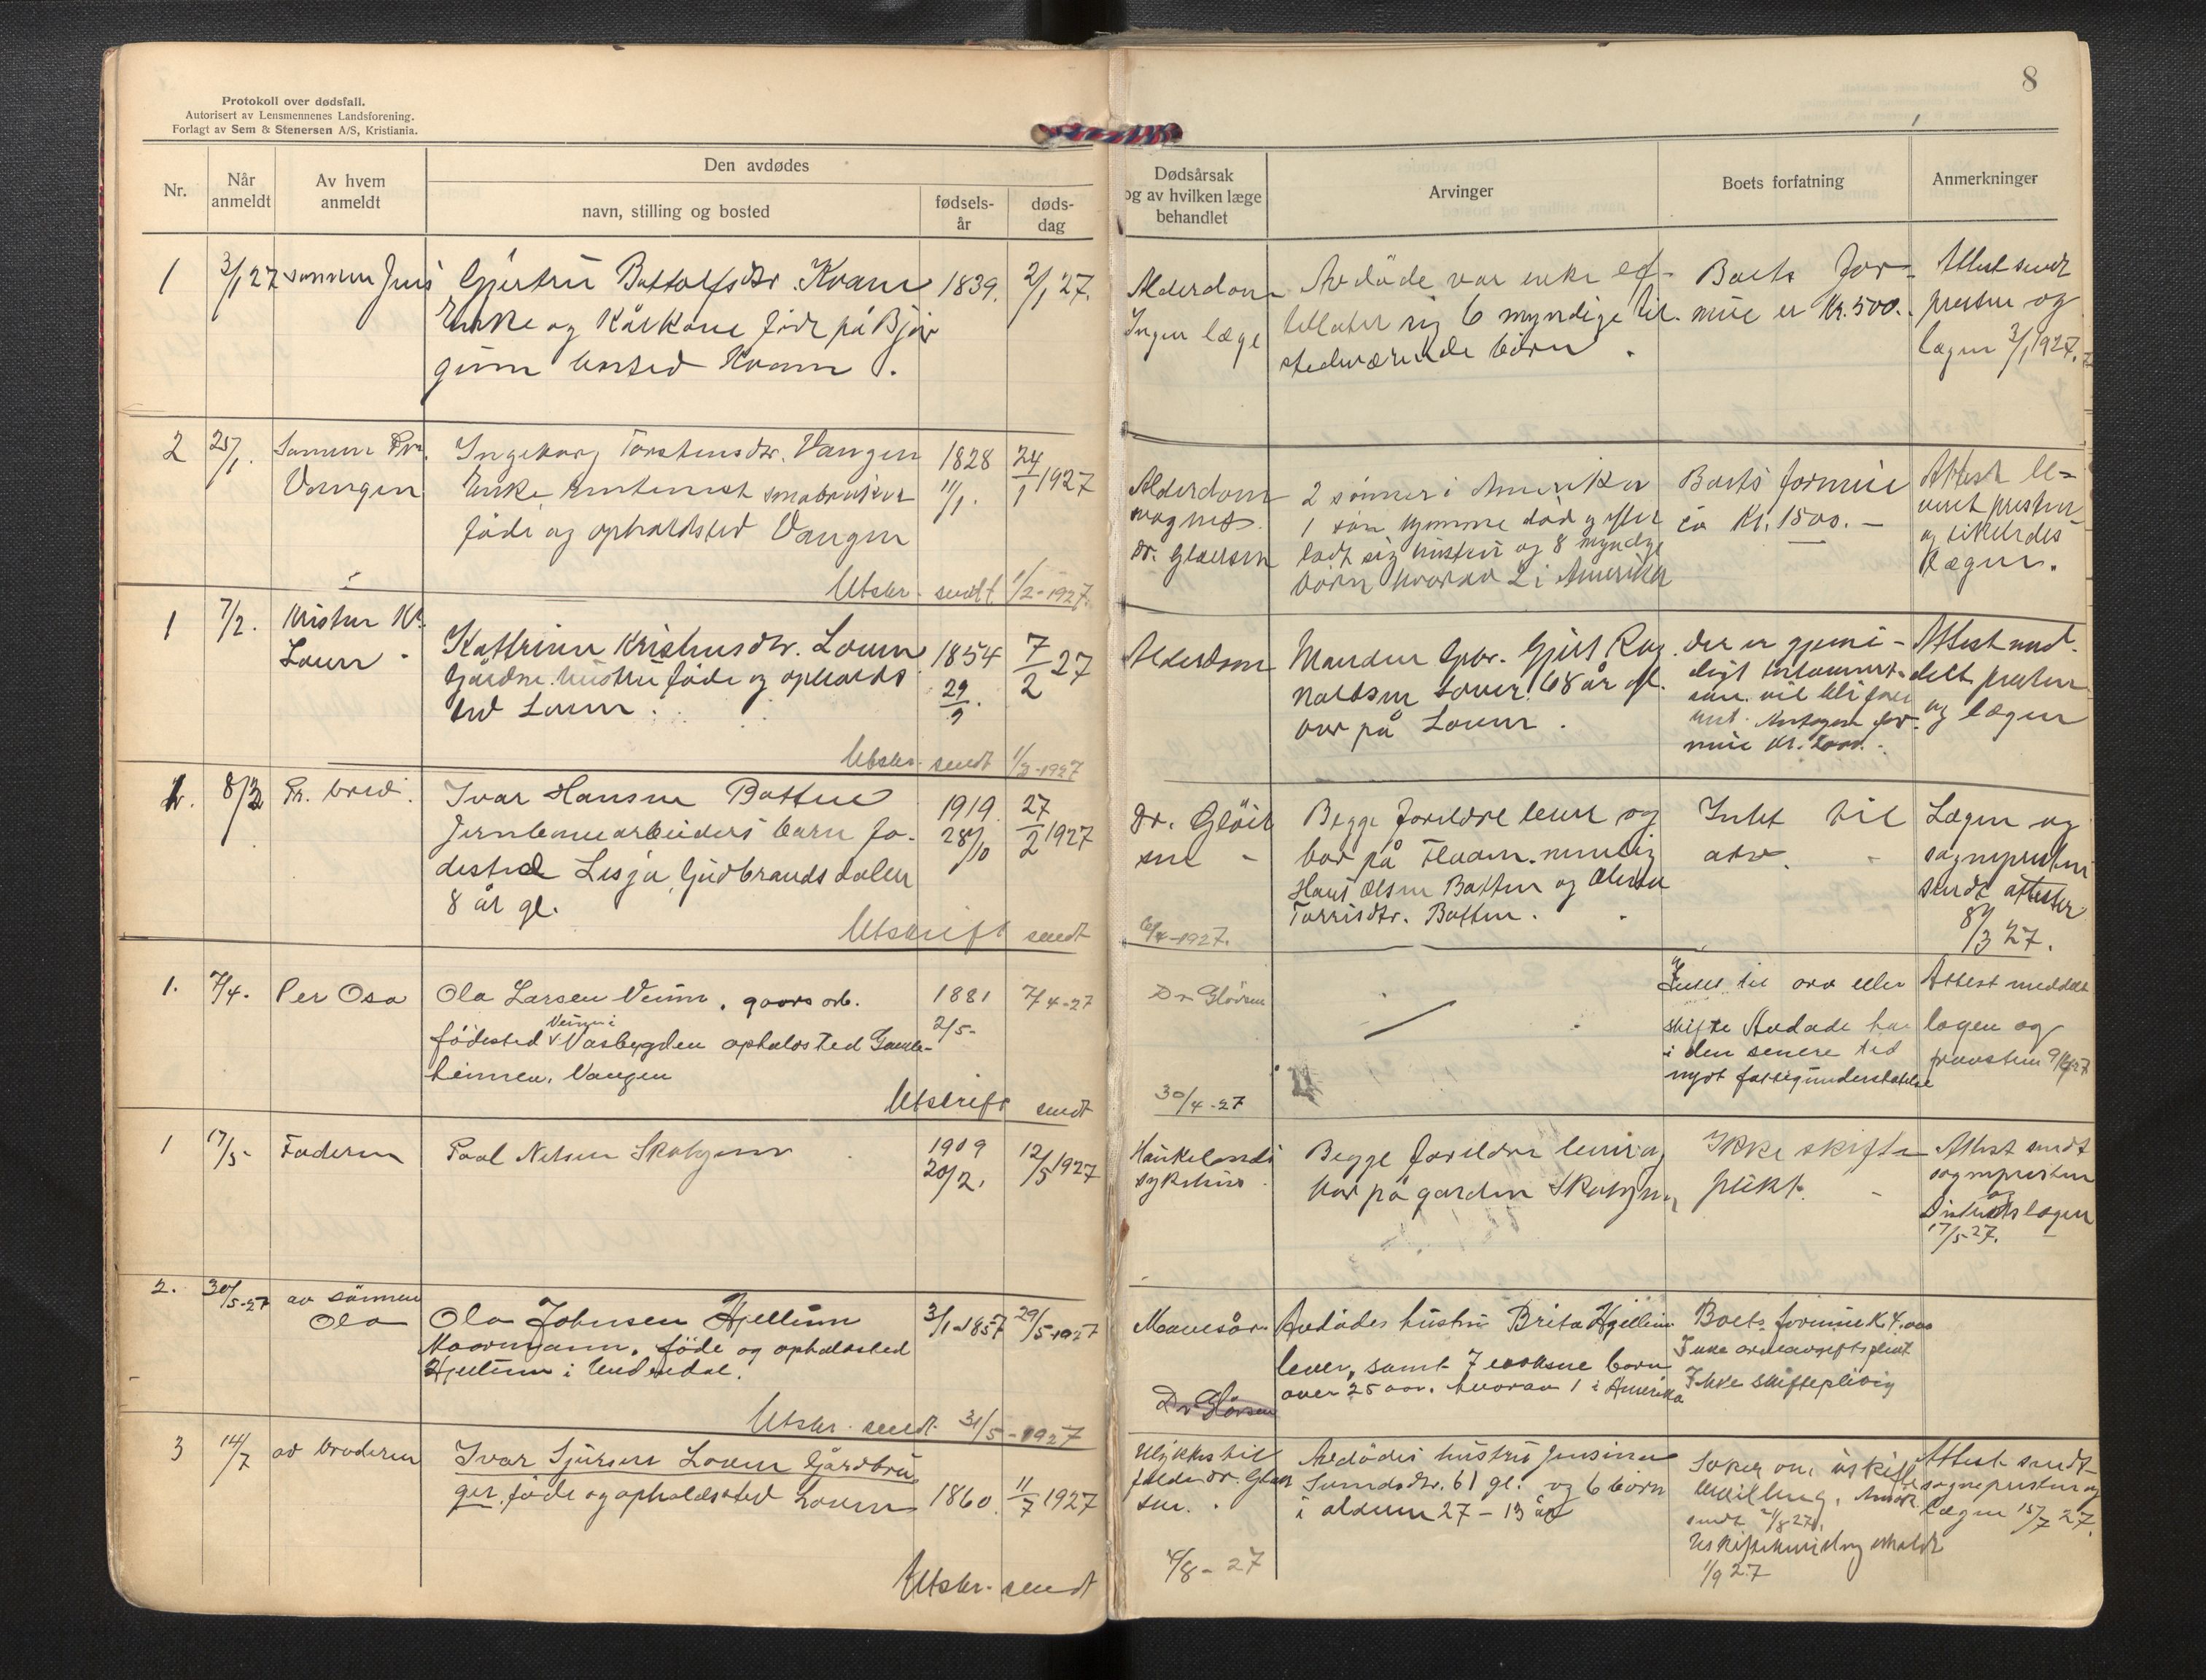 Protokoll over dødsfall.
Autorisert av Lensmennenes Landsforening.
Forlagt av Sem & Stenersen A/S, Kristiania.
8
Nr.
Når anmeldt
Av hvem anmeldt
Den avdødes
navn, stilling og bosted
fødsels-år
døds-dag
Dødsårsak og av hvilken læge behandlet
Arvinger
Boets forfatning
Anmerkninger
1
3/1 27
sønnen Jens
Gjertru Bottolfsdtr. Kvam
Enke og Kårkone født på Bjør
gum bosted Kvam.
1839.
2/1 27.
Alderdom
Ingen læge
Avdøde var enke ef-
terlater sig 6 myndige til-
stedeværende børn.
Boets for-
mue er Kr. 500.-
Attest sendt
presten og
lægen 3/1 1927.
2
25/1.
Sønnen
Vangen
Ingeborg Torstensdtr. Vangen
Enke småbruker
føde og opholdsted Vangen
1828
11/1.
24/1 1927
Alderdom
dr. Gløersen
2 sønner i Amerika
1 søn hjemme død og efter
lodt sig hustru og 8 myndige
børn hvorav 2 i Amerika
Boets formue
ca Kr. 1500.-
Attest le-
veret presten
og
lægen.
Utskr. sendt 1/2-1927.
1
7/2.
Kristen K.
Loven -
Kattrine Kristensdtr. Loven
Gårdm. hustru føde og opholds
sted Loven.
1854
29/9
7/2 27
Alderdom
Manden Gbr. Gjert Rag
naldsen Loven 68 år gl.
bor på Loven.
Der er gjensi-
digt testament.
som vil bli frem
vist. Antagen for-
mue Kr. 2000.-
Attest med-
delt presten
og lægen
Utskr. sendt 1/3-1927
2.
8/3
Pr. brev.
Ivar Hansen Botten
Jernbanearbeiders barn fø-
dested Lesja, Gudbrandsdalen
8 år gl.
1919
28/10
27/2 1927
Dr. Gløer
sen -
Begge foreldre lever og
bor på Flaam. nemlig
Hans Olsen Botten og
Torrisdtr. Botten.
Intet til
arv.
Lægen og
sognepresten
sendt attester
8/3 27.
Utskrift sendt
6/4-1927.
1.
7/4.
Per Osa
Ola Larsen Veum. gaards arb.
fødested Veum i Vasbygden opholdssted Gamle-
heimen, Vangen
1881
2/5-
7/4-27
Dr Gløersen
Intet til arv eller
skifte Avdøde har
i den senere tid
nydt fattigunderstøttelse
Attest meddelt
lægen og
provsten 9/4 27
Utskrift sendt
30/4-27
1
17/5-
Faderen
Paal Nelsen Skahjem
1909
20/2.
12/5 1927
Haukelands
sykehus
Begge foreldre lever og
bor på garden Skahjem
Ikke skifte
plikt.
Attest sendt
sognepresten
og
Distriktslægen
17/5-27.
2.
30/5-27
av sønnen
Ola
Ola Johnsen Hjellum
Kaarmann. føde og opholdssted
Hjellum i Undredal.
3/1-1857
29/5-1927
Mavesår.
Dr Gløersen
Avdødes hustru Brita Hjellum
lever, samt 7 voksne børn
over 25 aar. hvorav 1 i Amerika
Boets formue K. 4.000
Ikke arveavgiftsplikt
Ikke skiftepliktig
Utskr. sendt 31/5-1927
3
14/7
av broderen
Ivar Sjursen Loven Gårdbru
ger. føde og opholdssted Loven
1860.
11/7 1927
Ulykkestil
felde dr. Gløer
sen.
Avdødes hustru Jensine
61 gl. og 6 børn
i alderen 27 - 13 år
Søker om uskifte
bevilling. Ansøk.
sendt 2/8 27.
Uskiftebevilling erholdt
1/9 27
Attest sendt
sognepresten og
lægen 15/7 27.
Utskr. sendt
4/8-27